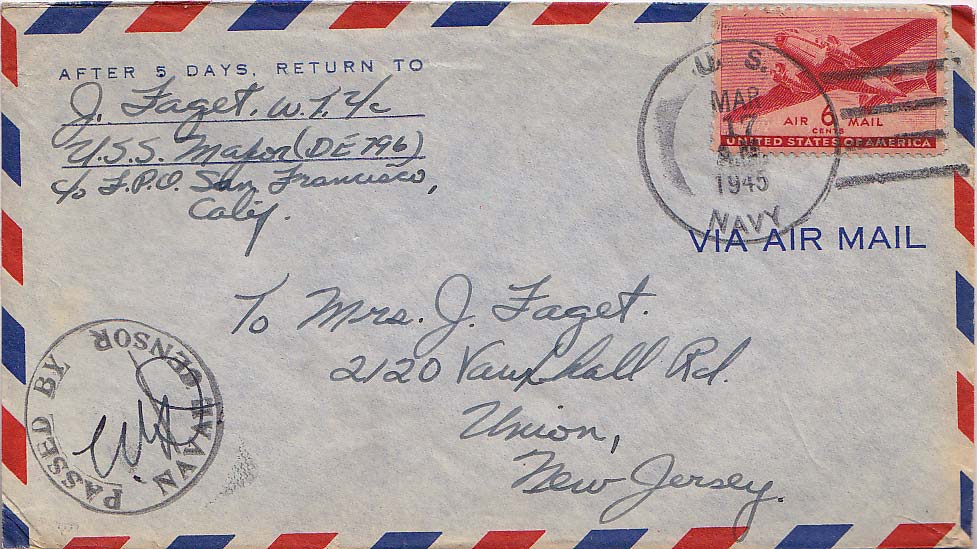 AFTER 5 DAYS, RETURN TO
J. Faget. W.T. 2/c
U.S.S. Major (DE 796)
c/o F.P.O. San Francisco,
Calif.
U. S.
MAR
17
A.M.
1945
NAVY
AIR 6 MAIL
CENTS
UNITED STATES OF AMERICA
VIA AIR MAIL
To Mrs. J. Faget.
2120 Vauxhall Rd.
Union,
New Jersey.
PASSED BY NAVAL CENSOR